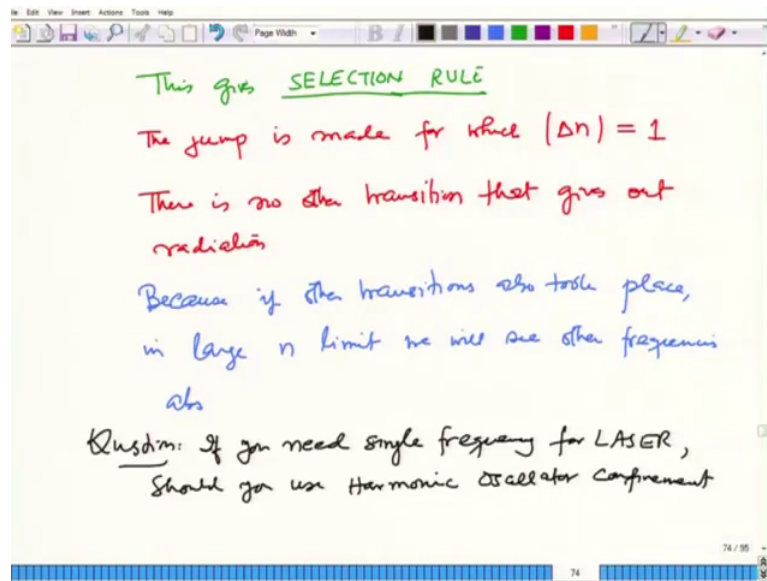 le Edit View Insert Actions Tools Help
Page Width
B I
This gives SELECTION RULE
The jump is made for which (Δn) = 1
There is no other transition that gives out
radiation
Because if other transitions also took place,
in large n limit we will see other frequencies
also
Question: If you need single frequency for LASER,
Should you use Harmonic Oscillator Confinement
74 / 95
74